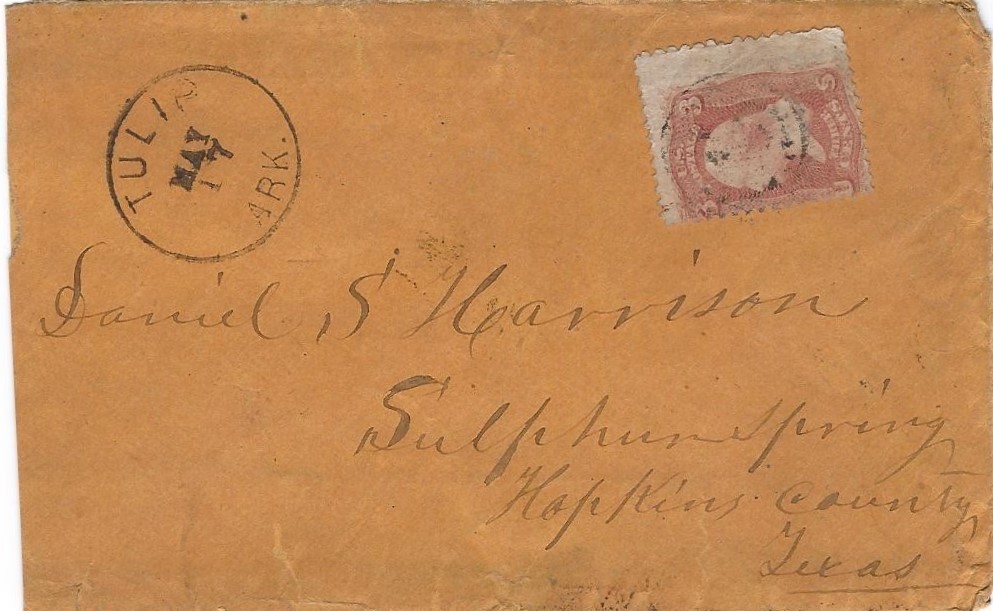 TULIP
MAY
17
ARK.
3 3
Daniel S Harrison
Sulphur Spring
Hopkins County
Texas